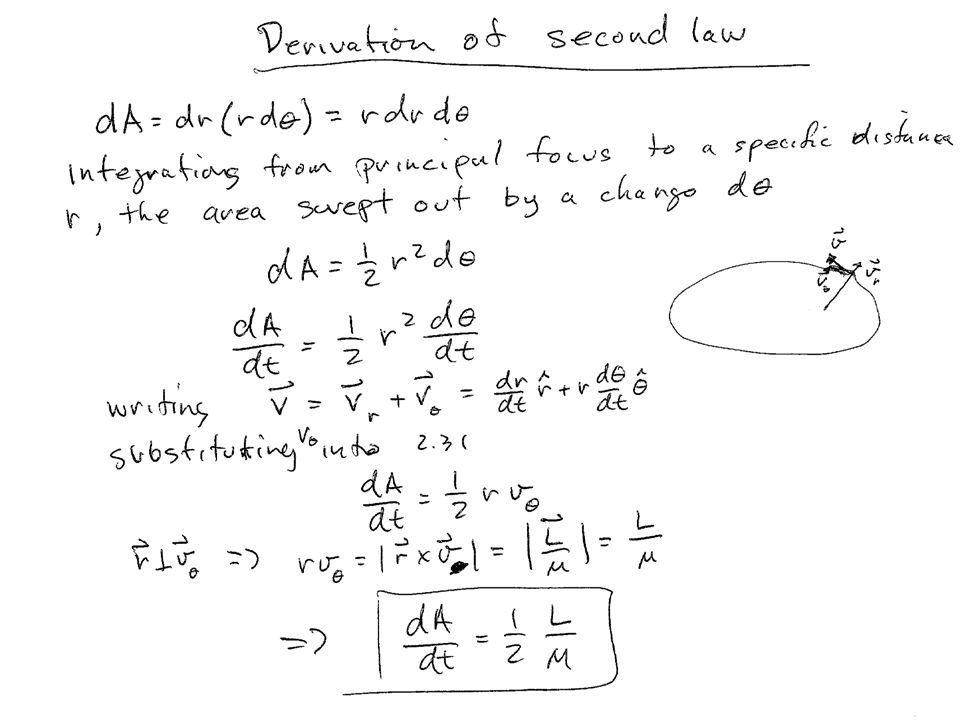 Derivation of second law
dA = dr (r dθ) = r dr dθ
integrating from principal focus to a specific distance
r, the area swept out by a change dθ
dA = 1/2 r² dθ
dA/dt = 1/2 r² dθ/dt
v⃗ v⃗_θ v⃗_r
writing v⃗ = v⃗_r + v⃗_θ = dr/dt r̂ + r dθ/dt θ̂
substituting v_θ into 2.31
dA/dt = 1/2 r v_θ
r⃗ ⊥ v⃗_θ => r v_θ = |r⃗ × v⃗| = |L⃗/μ| = L/μ
=> dA/dt = 1/2 L/μ